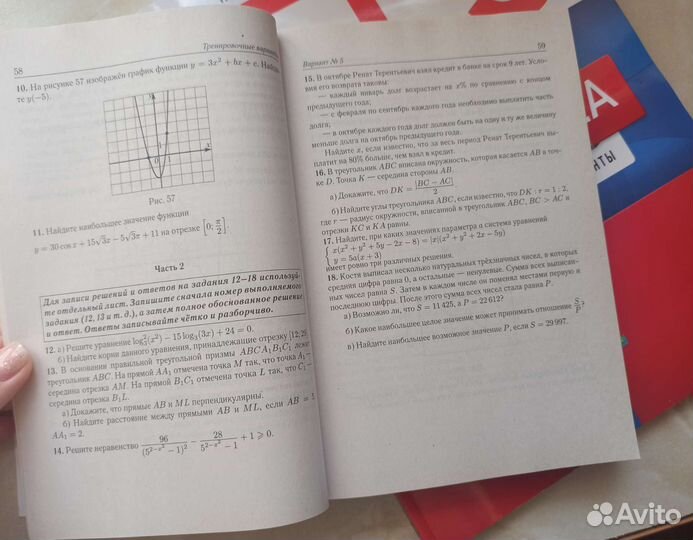 58
Тренировочные варианты
10. На рисунке 57 изображён график функции y = 3x² + bx + c. Найди-
те y(−5).
y
1
0
1
x
Рис. 57
11. Найдите наибольшее значение функции
y = 30 cos x + 15√3x − 5√3π + 11 на отрезке [0; π/2].
Часть 2
Для записи решений и ответов на задания 12–18 используй-
те отдельный лист. Запишите сначала номер выполняемого
задания (12, 13 и т. д.), а затем полное обоснованное решение
и ответ. Ответы записывайте чётко и разборчиво.
12. а) Решите уравнение log₃²(x²) − 15 log₃(3x) + 24 = 0.
б) Найдите корни данного уравнения, принадлежащие отрезку
13. В основании правильной треугольной призмы ABCA₁B₁C₁ лежит
треугольник ABC. На прямой AA₁ отмечена точка M так, что точка A₁ —
середина отрезка AM. На прямой B₁C₁ отмечена точка L так, что C₁ —
середина отрезка B₁L.
а) Докажите, что прямые AB и ML перпендикулярны.
б) Найдите расстояние между прямыми AB и ML, если AB =
AA₁ = 2.
14. Решите неравенство 96/(5^(2−x²) − 1)² − 28/(5^(2−x²) − 1) + 1 ⩾ 0.
Вариант № 5
59
15. В октябре Ренат Терентьевич взял кредит в банке на срок 9 лет. Усло-
вия его возврата таковы:
— каждый январь долг возрастает на x% по сравнению с концом
предыдущего года;
— с февраля по сентябрь каждого года необходимо выплатить часть
долга;
— в октябре каждого года долг должен быть на одну и ту же величину
меньше долга на октябрь предыдущего года.
Найдите x, если известно, что за весь период Ренат Терентьевич вы-
платит на 80% больше, чем взял в кредит.
16. В треугольник ABC вписана окружность, которая касается AB в точ-
ке D. Точка K — середина стороны AB.
а) Докажите, что DK = |BC − AC|/2.
б) Найдите углы треугольника ABC, если известно, что DK : r = 1 : 2,
где r — радиус окружности, вписанной в треугольник ABC, BC > AC и
отрезки KC и KA равны.
17. Найдите, при каких значениях параметра a система уравнений
{ x(x² + y² + 5y − 2x − 8) = |x|(x² + y² + 2x − 5y)
y = 5a(x + 3)
имеет ровно три различных решения.
18. Костя выписал несколько натуральных трёхзначных чисел, в которых
средняя цифра равна 0, а остальные — ненулевые. Сумма всех выписан-
ных чисел равна S. Затем в каждом числе он поменял местами первую и
последнюю цифры. После этого сумма всех чисел стала равна P.
а) Возможно ли, что S = 11 425, а P = 22 612?
б) Какое наибольшее целое значение может принимать отношение S/P?
в) Найдите наибольшее возможное значение P, если S = 29 997.
А
НТЫ
Avito